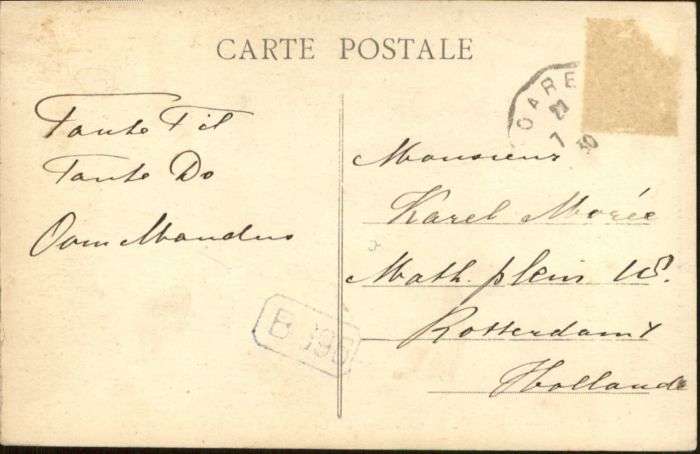 CARTE POSTALE
Tante Til
Tante Do
Oom Mandus
OARE
7 23
30
Monsieur
Karel Morée
Math. plein
Rotterdam
Hollande
B 396